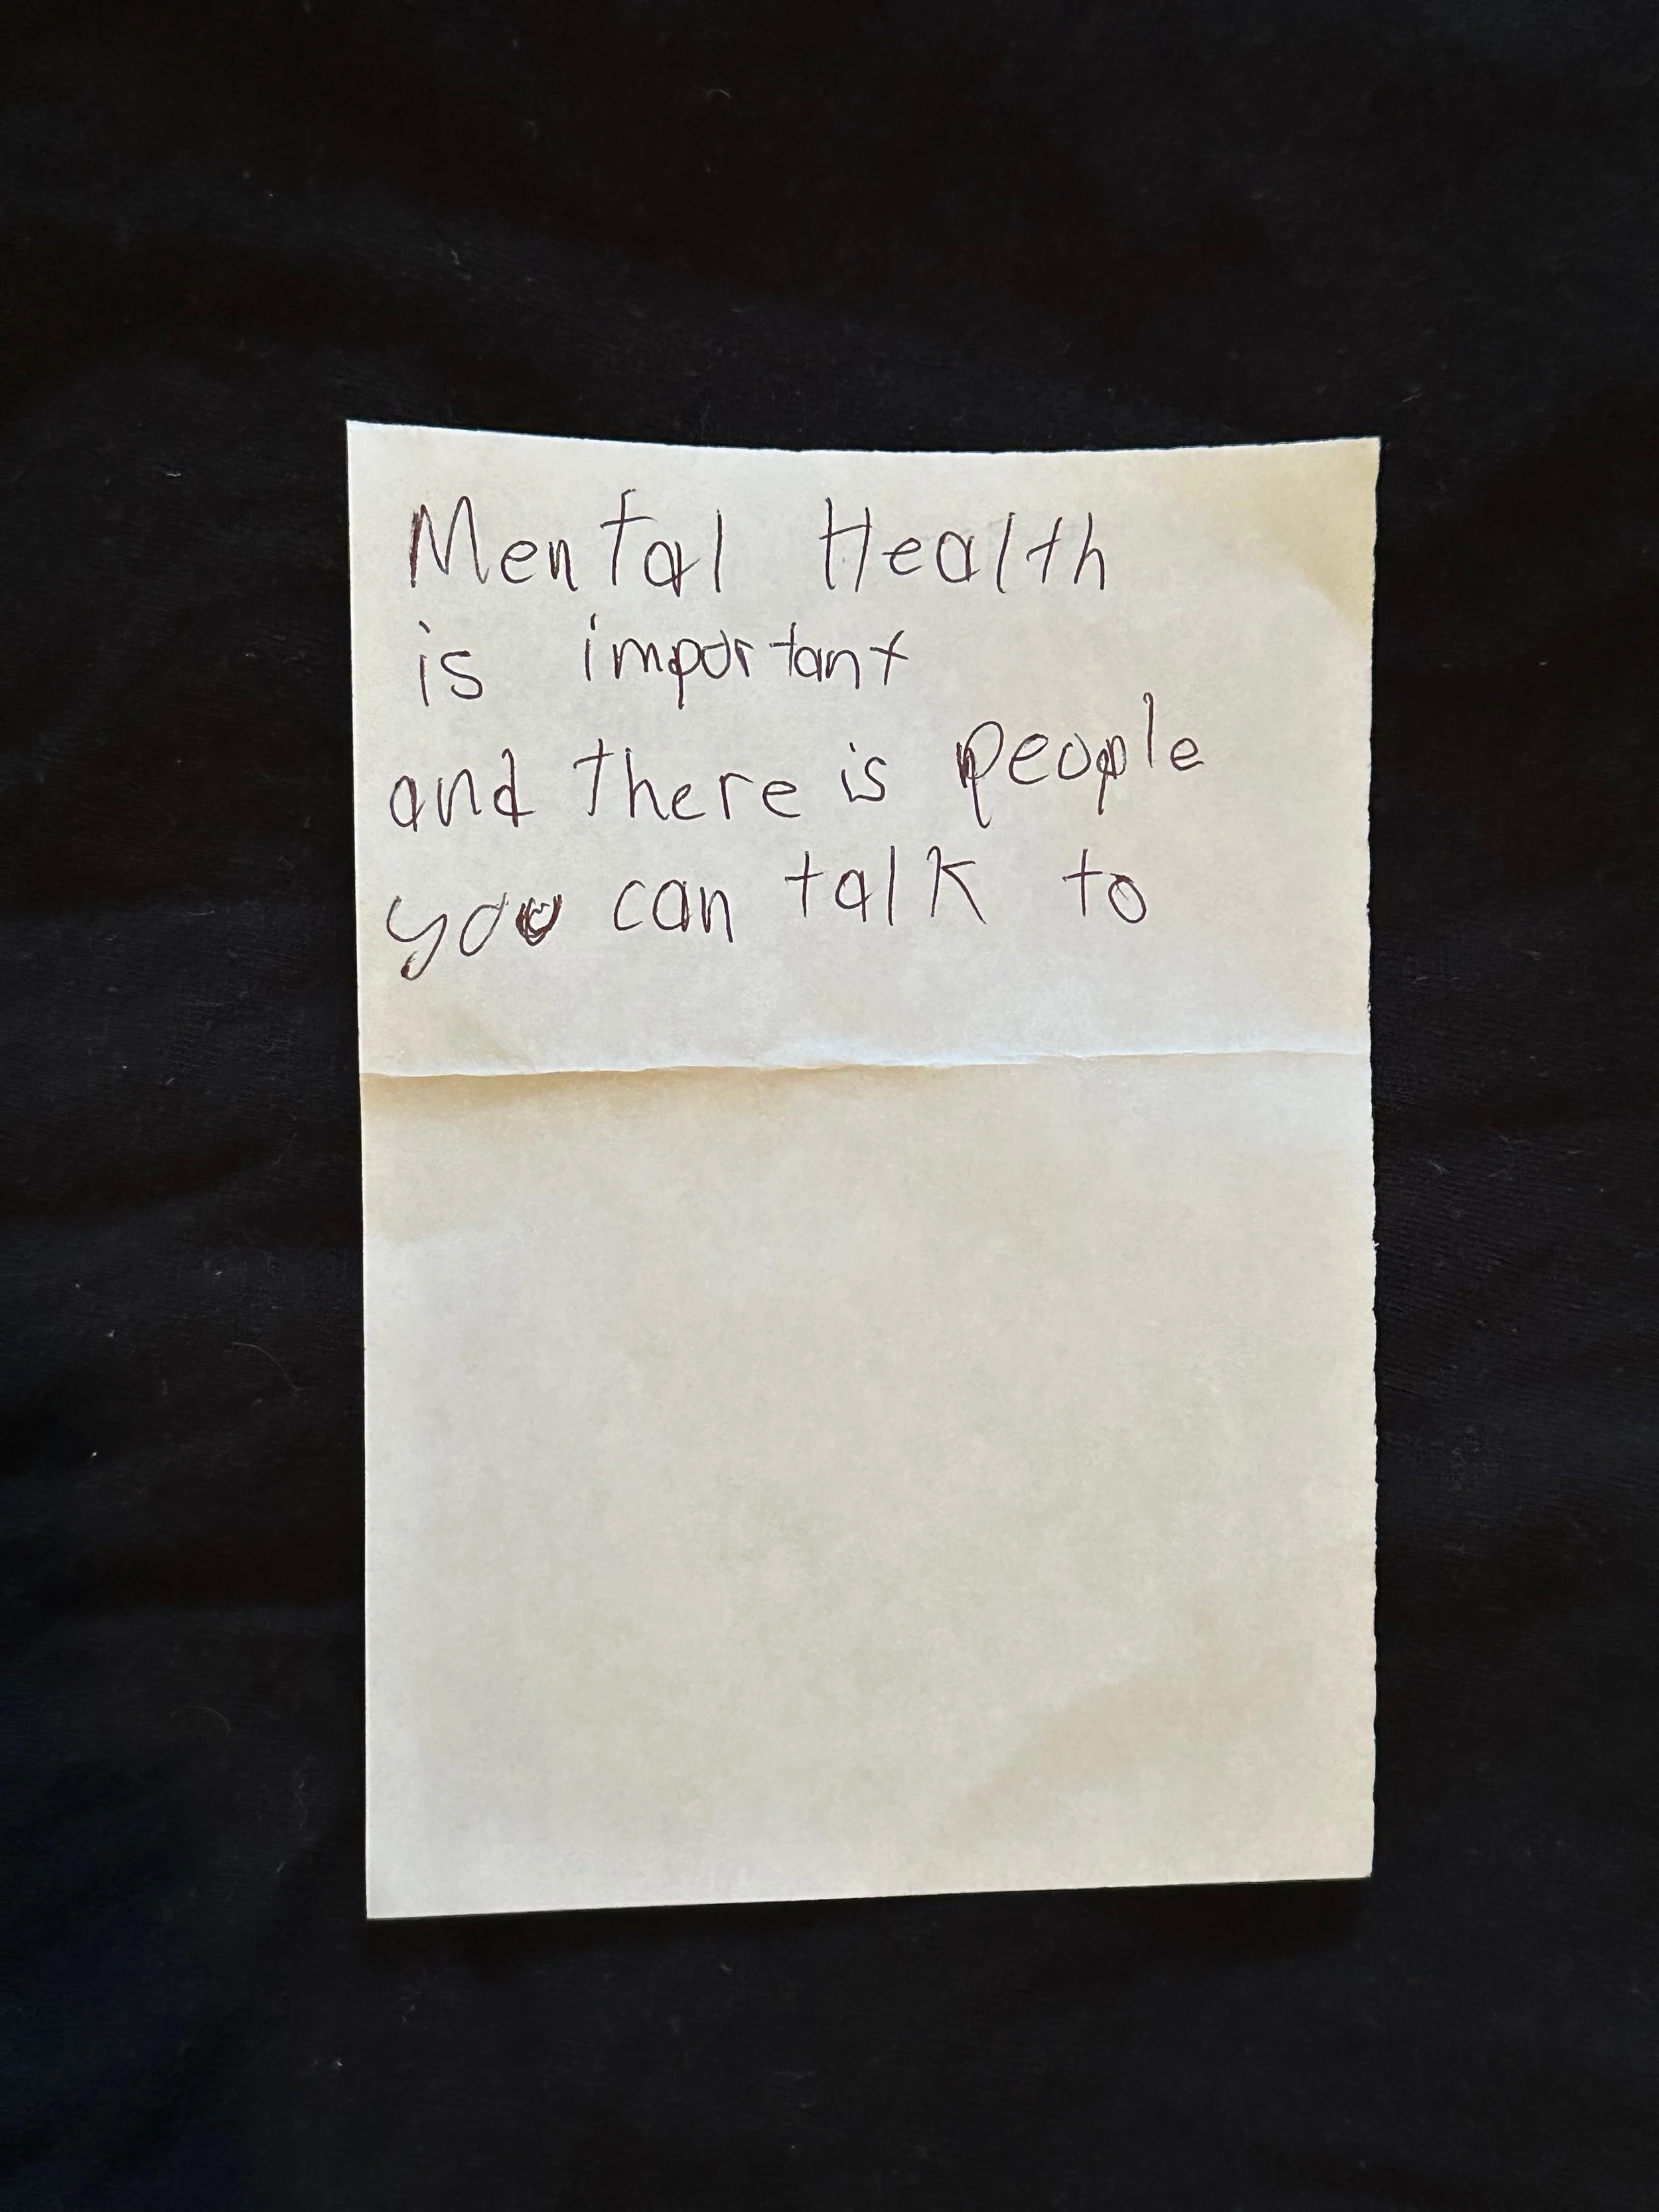 Mental Health
is important
and there is people
you can talk to